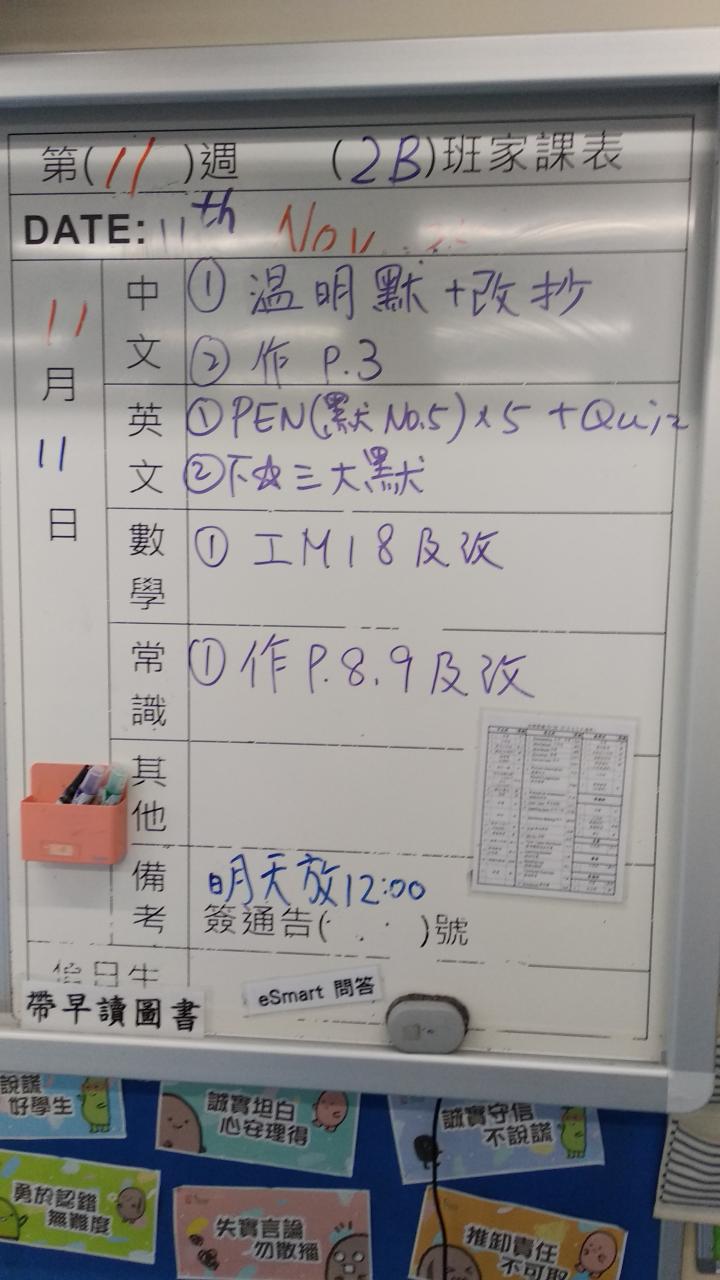 第(11)週 (2B)班家課表
DATE: 11th Nov
11月11日
中文
① 溫明默+改抄
② 作 P.3
英文
① PEN(默 No.5)×5 + Quiz
② 下 三大默
數學
① 工M18及改
常識
① 作P.8.9及改
其他
備考
明天放12:00
簽通告( )號
帶早讀圖書
eSmart 問答
說謊
好學生
誠實坦白
心安理得
誠實守信
不說謊
勇於認錯
無難度
失實言論
勿散播
推卸責任
不可取